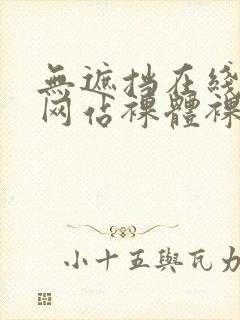 無遮挡在綫
网佔裸體裸
小十五與瓦力